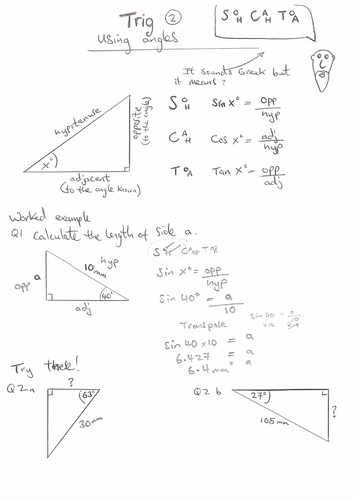 Trig ②
Using angles
SOH CAH TOA
It sounds Greek but
it means?
hypotenuse
opposite
(to the angle)
x°
adjacent
(to the angle known)
SOH Sin x° = opp/hyp
CAH Cos x° = adj/hyp
TOA Tan x° = opp/adj
Worked example
Q1 Calculate the length of side a.
SOH CAH TOA
hyp
10mm
a
opp
40°
adj
Sin x° = opp/hyp
Sin 40° = a/10
Transpose
Sin 40 × 10 = a
6.427 = a
6.4mm = a
Try these!
Q2 a
?
63°
30mm
Q2 b
27°
?
105mm